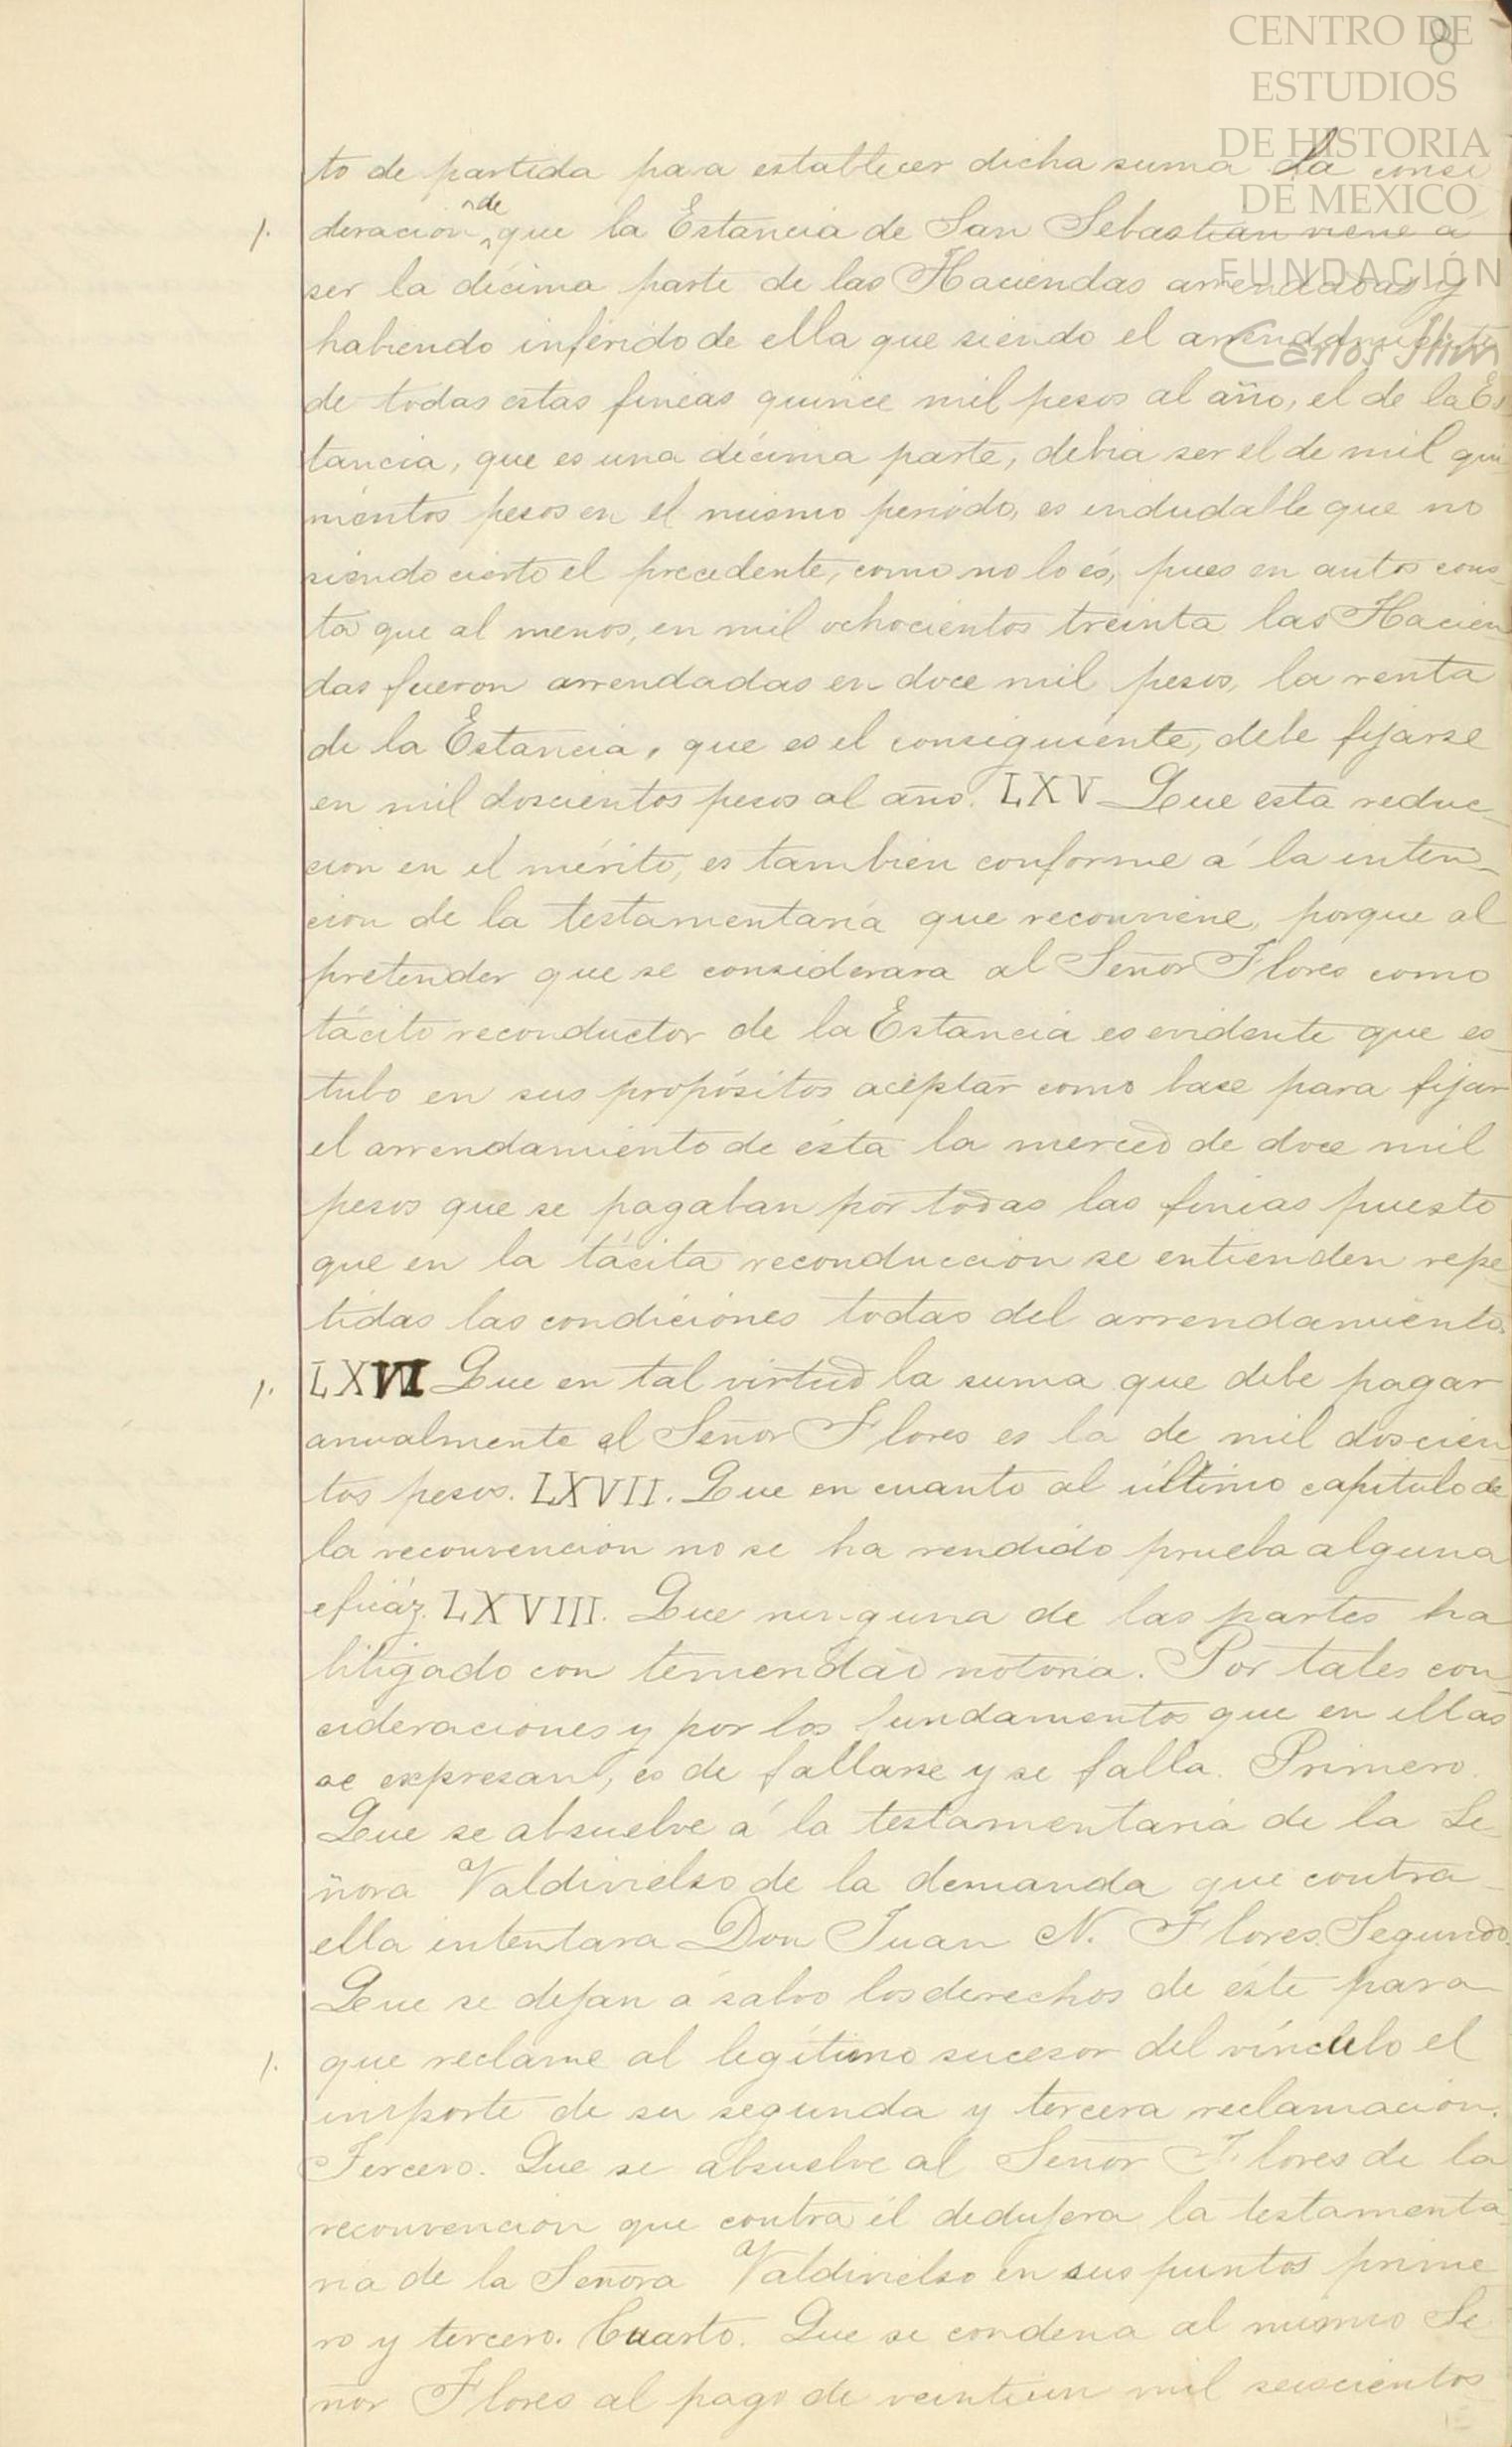 CENTRO DE
ESTUDIOS
DE HISTORIA
DE MEXICO
FUNDACIÓN
Carlos Slim
8
to de partida para establecer dicha suma la consi
1. deracion de que la Estancia de San Sebastian viene á
ser la décima parte de las Haciendas arrendadas y
habiendo inferido de ella que siendo el arrendamiento
de todas estas fincas quince mil pesos al año, el de la Es
tancia, que es una décima parte, debia ser el de mil qui
nientos pesos en el mismo periodo, es indudable que no
siendo cierto el precedente, como no lo és, pues en autos cons
ta que al menos, en mil ochocientos treinta las Hacien
das fueron arrendadas en doce mil pesos, la renta
de la Estancia, que es el consiguiente, debe fijarse
en mil doscientos pesos al año. LXV Que esta reduc-
cion en el mérito, es tambien conforme á la inten-
cion de la testamentaria que reconviene, porque al
pretender que se considerara al Señor Flores como
tácito reconductor de la Estancia es evidente que es-
tubo en sus propósitos aceptar como base para fijar
el arrendamiento de ésta la merced de doce mil
pesos que se pagaban por todas las fincas puesto
que en la tácita reconduccion se entienden repe-
tidas las condiciones todas del arrendamiento.
1. LXVI Que en tal virtud la suma que debe pagar
anualmente el Señor Flores es la de mil doscien
tos pesos. LXVII. Que en cuanto al último capitulo de
la reconvencion no se ha rendido prueba alguna
eficáz. LXVIII. Que ninguna de las partes ha
litigado con temeridad notoria. Por tales con-
cideraciones y por los fundamentos que en ellas
se expresan, es de fallarse y se falla. Primero.
Que se absuelve á la testamentaria de la Se-
ñora Valdivielso de la demanda que contra
ella intentara Don Juan N. Flores. Segundo.
Que se dejan á salvo los derechos de éste para
1. que reclame al legítimo sucesor del vínculo el
importe de su segunda y tercera reclamacion.
Tercero. Que se absuelve al Señor Flores de la
reconvencion que contra él dedujera la testamenta
ria de la Señora Valdivielso en sus puntos prime
ro y tercero. Cuarto. Que se condena al mismo Se-
ñor Flores al pago de veintiun mil seiscientos